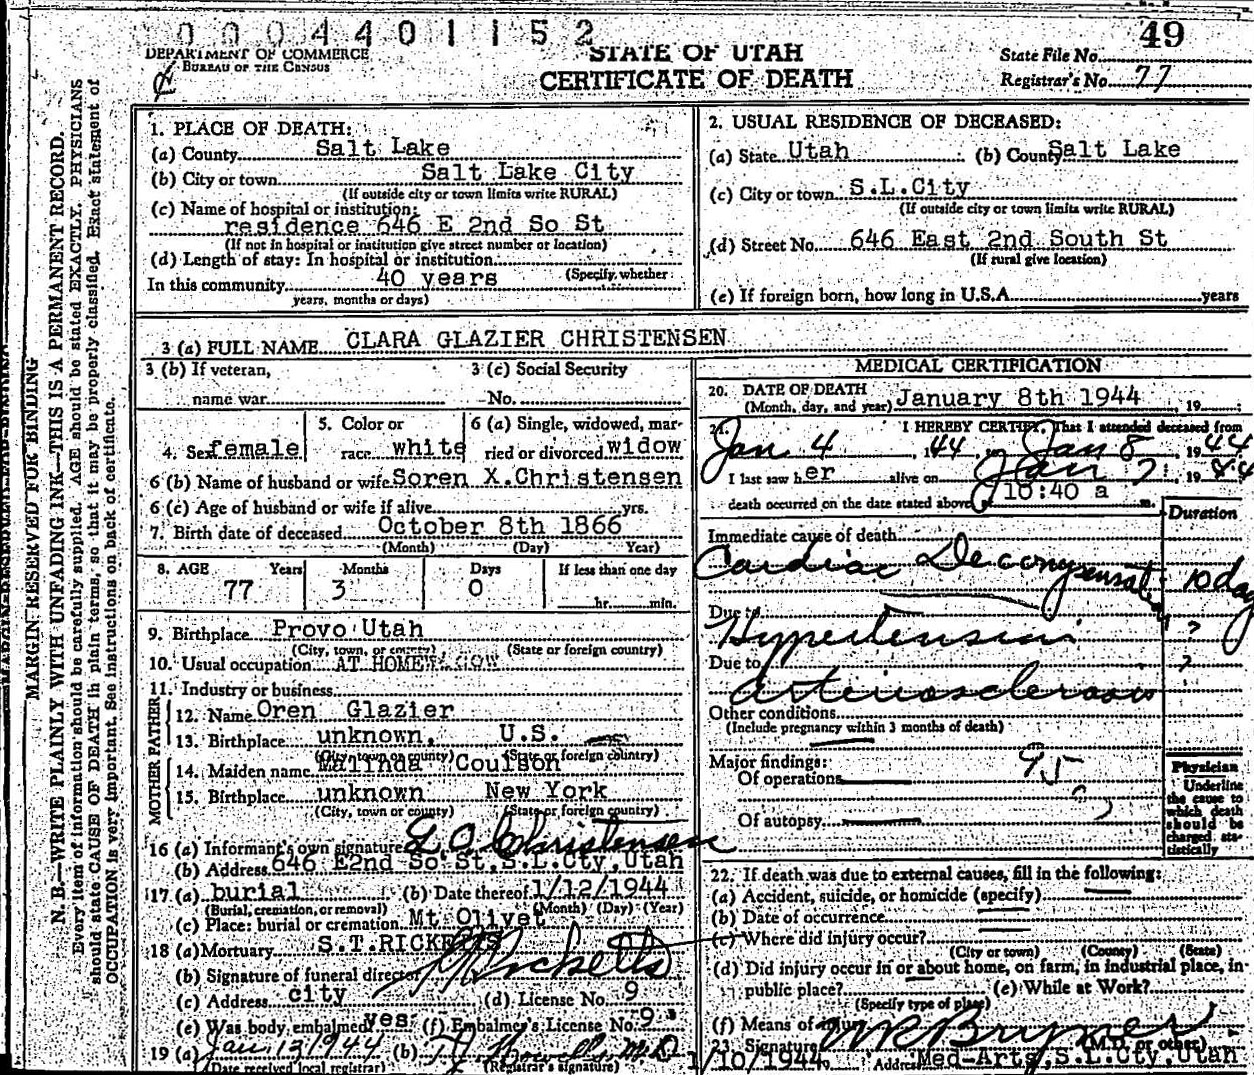 0 0 0 4 4 0 1 1 5 2
49
DEPARTMENT OF COMMERCE
BUREAU OF THE CENSUS
STATE OF UTAH
CERTIFICATE OF DEATH
State File No.
Registrar's No. 77
MARGIN RESERVED FOR BINDING
N. B.—WRITE PLAINLY WITH UNFADING INK—THIS IS A PERMANENT RECORD.
Every item of information should be carefully supplied. AGE should be stated EXACTLY. PHYSICIANS
should state CAUSE OF DEATH in plain terms, so that it may be properly classified. Exact statement of
OCCUPATION is very important. See instructions on back of certificate.
1. PLACE OF DEATH:
(a) County Salt Lake
(b) City or town Salt Lake City
(If outside city or town limits write RURAL)
(c) Name of hospital or institution:
residence 646 E 2nd So St
(If not in hospital or institution give street number or location)
(d) Length of stay: In hospital or institution
(Specify whether
In this community 40 years
years, months or days)
2. USUAL RESIDENCE OF DECEASED:
(a) State Utah (b) County Salt Lake
(c) City or town S.L.City
(If outside city or town limits write RURAL)
(d) Street No. 646 East 2nd South St
(If rural give location)
(e) If foreign born, how long in U.S.A. years
3 (a) FULL NAME CLARA GLAZIER CHRISTENSEN
3 (b) If veteran,
name war
3 (c) Social Security
No.
4. Sex female
5. Color or
race white
6 (a) Single, widowed, mar-
ried or divorced widow
6 (b) Name of husband or wife Soren X.Christensen
6 (c) Age of husband or wife if alive yrs.
7. Birth date of deceased October 8th 1866
(Month) (Day) Year)
8. AGE Years Months Days If less than one day
77 3 0 hr. min.
9. Birthplace Provo Utah
(City, town, or county) (State or foreign country)
10. Usual occupation AT HOME
11. Industry or business
FATHER
12. Name Oren Glazier
13. Birthplace unknown, U.S.
(City, town or county) (State or foreign country)
MOTHER
14. Maiden name Malinda Coulson
15. Birthplace unknown New York
(City, town or county) (State or foreign country)
16 (a) Informant's own signature Christensen
(b) Address 646 E2nd So St,S.L.Cty,Utah
17 (a) burial (b) Date thereof 1/12/1944
(Burial, cremation, or removal) (Month) (Day) (Year)
(c) Place: burial or cremation Mt Olivet
18 (a) Mortuary S.T.RICKETTS
(b) Signature of funeral director Ricketts
(c) Address city (d) License No. 9
(e) Was body embalmed yes (f) Embalmer's License No. 9
19 (a) Jan 13/1944 (b)
(Date received local registrar) (Registrar's signature)
MEDICAL CERTIFICATION
20. DATE OF DEATH
(Month, day, and year) January 8th 1944, 19
21. I HEREBY CERTIFY, That I attended deceased from
Jan 4, 1944, Jan 8, 1944
I last saw her alive on Jan 7, 1944
death occurred on the date stated above 10:40 a m.
Duration
Immediate cause of death
Cardiac Decompensation 10 day
Due to
Hypertension ?
Due to ?
arteriosclerosis
Other conditions
(Include pregnancy within 3 months of death)
Major findings:
Of operations
95
Of autopsy
Physician
Underline
the cause to
which death
should be
charged sta-
tistically
22. If death was due to external causes, fill in the following:
(a) Accident, suicide, or homicide (specify)
(b) Date of occurrence
(c) Where did injury occur?
(City or town) (County) (State)
(d) Did injury occur in or about home, on farm, in industrial place, in
public place? (e) While at Work?
(Specify type of place)
(f) Means of injury
23. Signature Bryner
(M.D. or other)
1/10/1944 Address Med-Arts,S.L.Cty,Utah